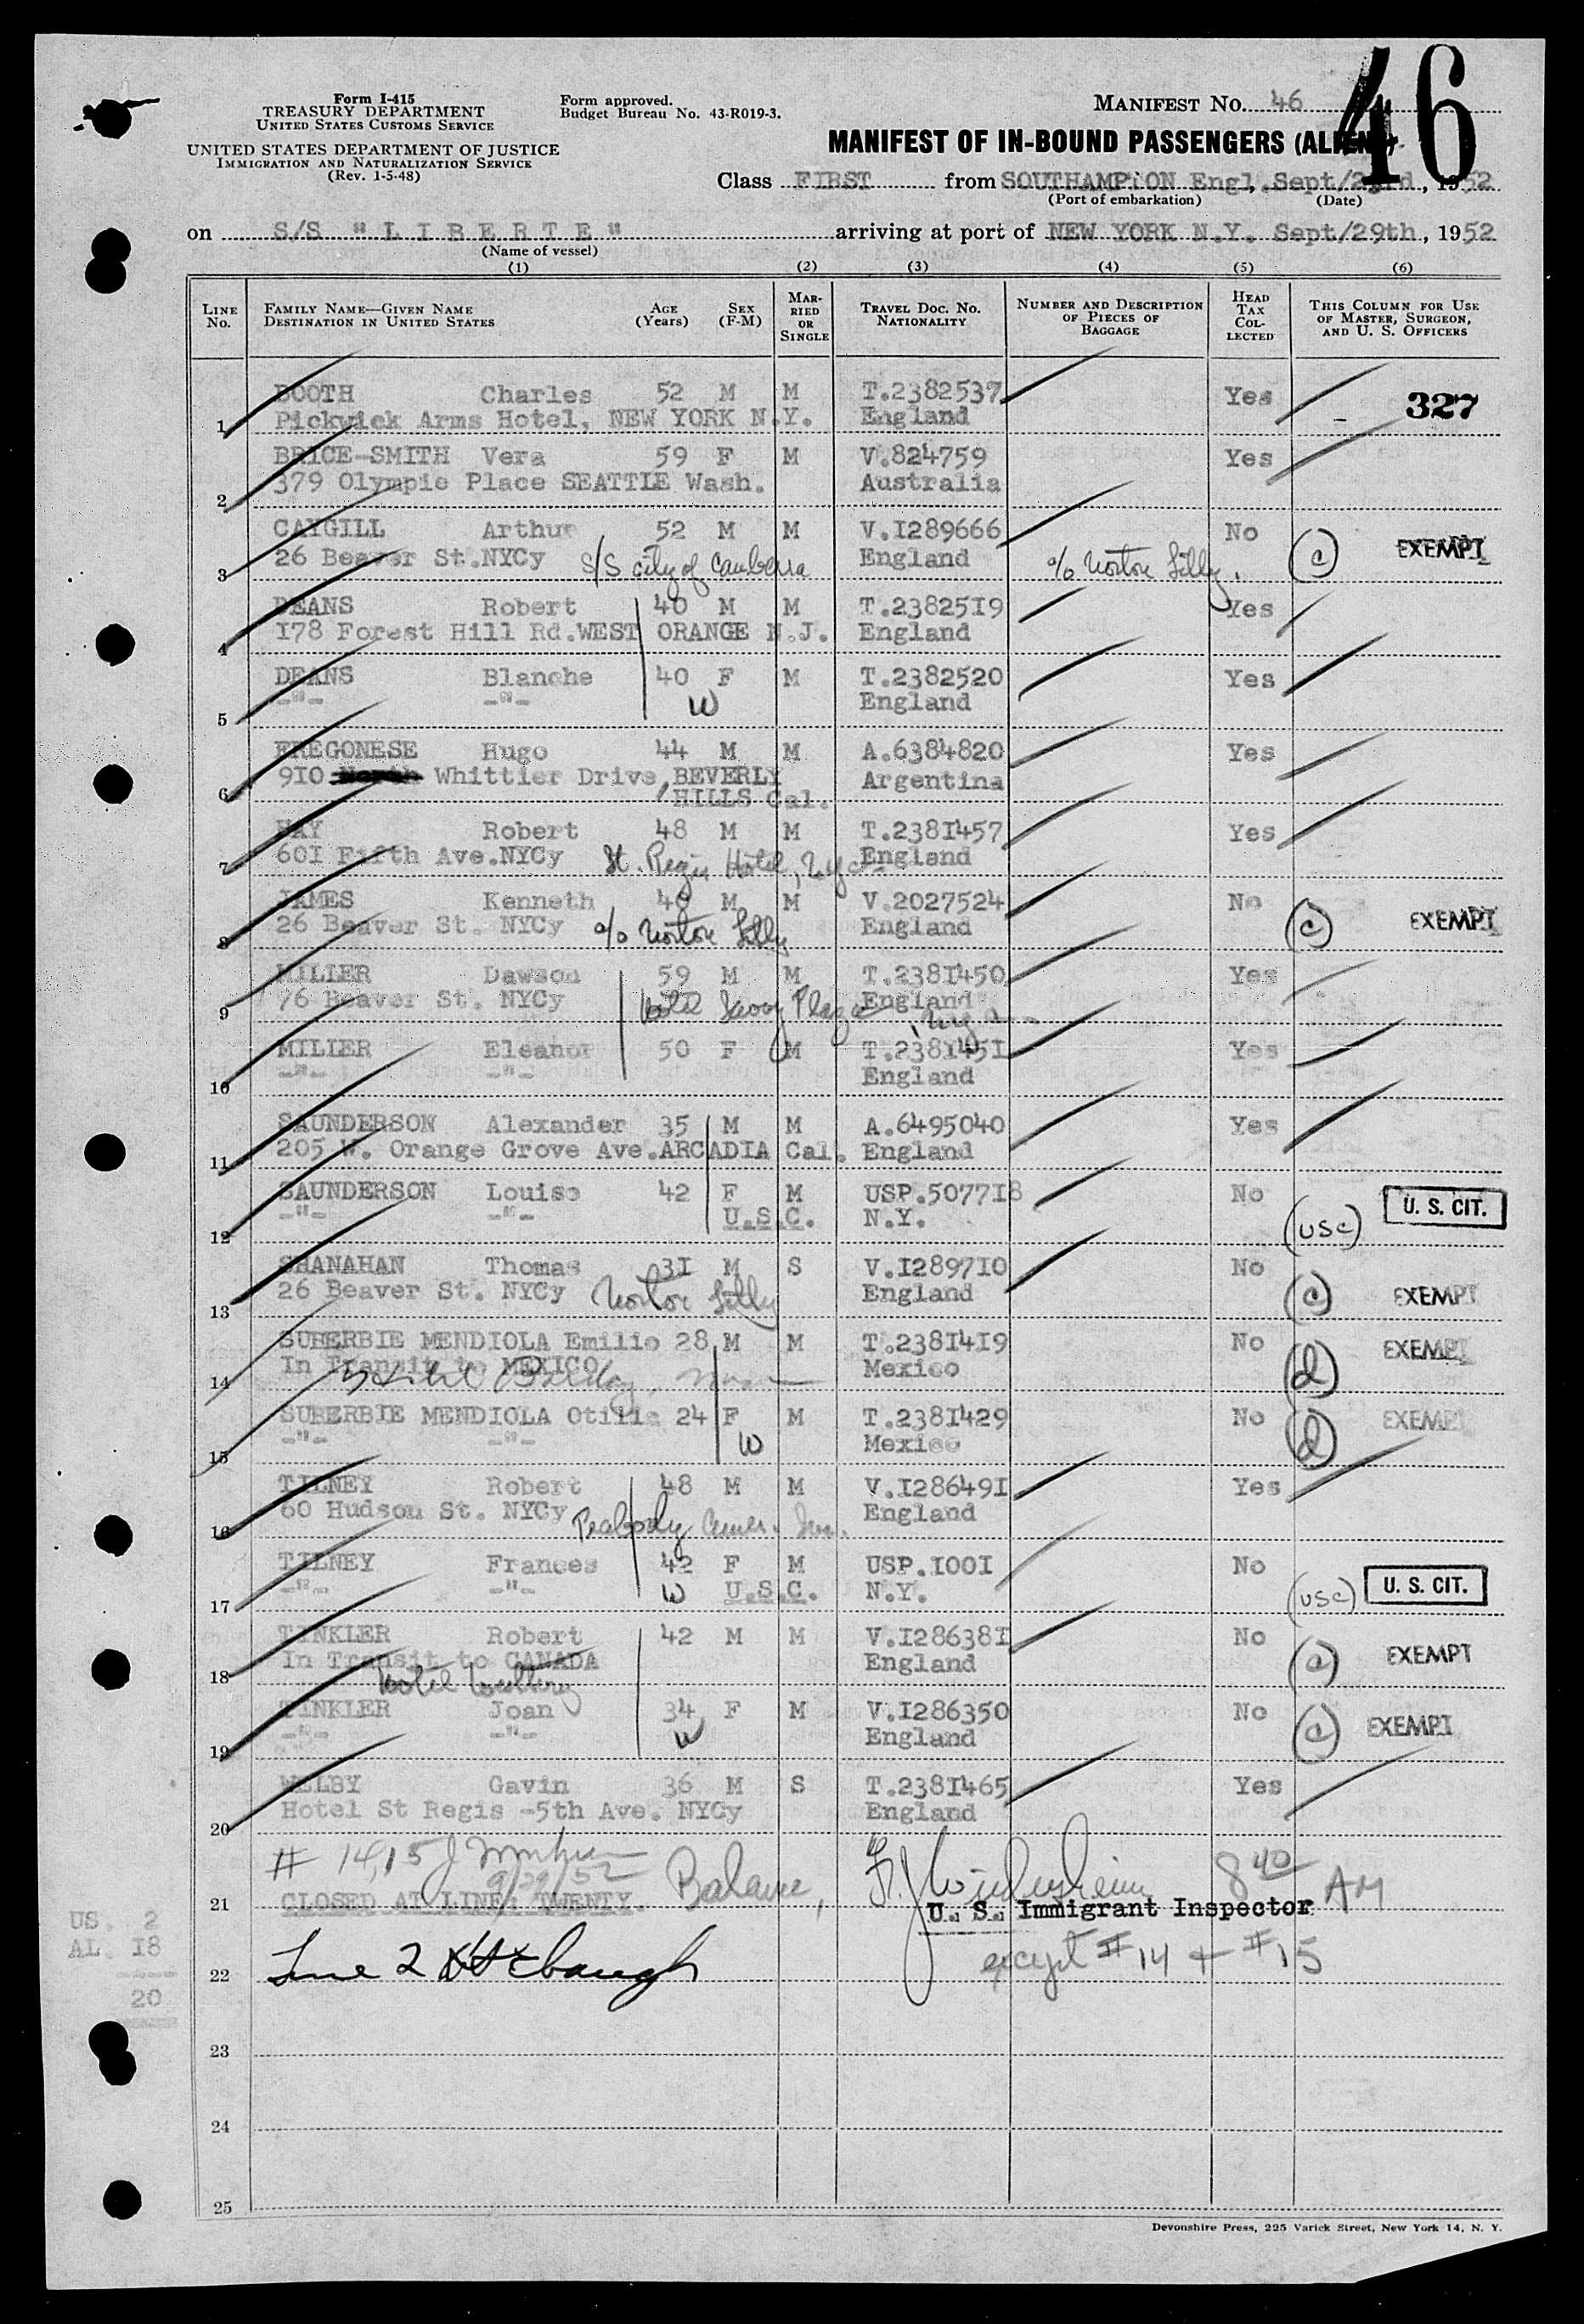 46
Form I-415
TREASURY DEPARTMENT
UNITED STATES CUSTOMS SERVICE
UNITED STATES DEPARTMENT OF JUSTICE
IMMIGRATION AND NATURALIZATION SERVICE
(Rev. 1-5-48)
Form approved.
Budget Bureau No. 43-R019-3.
MANIFEST NO. 46
MANIFEST OF IN-BOUND PASSENGERS (ALIEN)
Class FIRST from SOUTHAMPTON Engl, Sept/23rd, 1952
(Port of embarkation) (Date)
on S/S "LIBERTE" arriving at port of NEW YORK N.Y. Sept/29th, 1952
(Name of vessel)
(1) (2) (3) (4) (5) (6)
LINE No. FAMILY NAME—GIVEN NAME DESTINATION IN UNITED STATES AGE (Years) SEX (F-M) MARRIED OR SINGLE TRAVEL DOC. NO. NATIONALITY NUMBER AND DESCRIPTION OF PIECES OF BAGGAGE HEAD TAX COLLECTED THIS COLUMN FOR USE OF MASTER, SURGEON, AND U. S. OFFICERS
BOOTH Charles 52 M M T.2382537 Yes 327
1 Pickwick Arms Hotel, NEW YORK N.Y. England
BRICE-SMITH Vera 59 F M V.824759 Yes
2 379 Olympic Place SEATTLE Wash. Australia
CAYGILL Arthur 52 M M V.I289666 No (c) EXEMPT
3 26 Beaver St.NYCy S/S city of Canberra England c/o Norton Lilly.
DEANS Robert 40 M M T.2382519 Yes
4 178 Forest Hill Rd.WEST ORANGE N.J. England
DEANS Blanche 40 F M T.2382520 Yes
5 -"- -"- W England
FREGONESE Hugo 44 M M A.6384820 Yes
6 910 North Whittier Drive, BEVERLY HILLS Cal. Argentina
HAY Robert 48 M M T.2381457 Yes
7 601 Fifth Ave.NYCy St. Regis Hotel, nyc England
JAMES Kenneth 46 M M V.2027524 No (c) EXEMPT
8 26 Beaver St. NYCy c/o Norton Lilly England
MILLER Dawson 59 M M T.2381450 Yes
9 76 Beaver St. NYCy Hotel Savoy Plaza nyc England
MILLER Eleanor 50 F M T.2381451 Yes
10 -"- -"- England
SAUNDERSON Alexander 35 M M A.6495040 Yes
11 205 W. Orange Grove Ave.ARCADIA Cal. England
SAUNDERSON Louise 42 F M USP.507718 No (USC) U. S. CIT.
12 -"- -"- U.S.C. N.Y.
SHANAHAN Thomas 31 M S V.I289710 No (c) EXEMPT
13 26 Beaver St. NYCy Norton Lilly England
SUBERBIE MENDIOLA Emilio 28 M M T.2381419 No (d) EXEMPT
14 In Transit to MEXICO Mexico
SUBERBIE MENDIOLA Otilia 24 F M T.2381429 No (d) EXEMPT
15 -"- -"- W Mexico
TILNEY Robert 48 M M V.I286491 Yes
16 60 Hudson St. NYCy Peabody England
TILNEY Frances 42 F M USP.1001 No (USC) U. S. CIT.
17 -"- -"- W U.S.C. N.Y.
TINKLER Robert 42 M M V.I286381 No (c) EXEMPT
18 In Transit to CANADA Hotel England
TINKLER Joan 34 F M V.I286350 No (c) EXEMPT
19 -"- -"- W England
WELBY Gavin 36 M S T.2381465 Yes
20 Hotel St Regis -5th Ave. NYCy England
# 14,15 9/29/52 Balance, 8 40 AM
21 CLOSED AT LINE: TWENTY. U. S. Immigrant Inspector
US. 2
AL. 18
20
22 Line 2 except #14 + #15
23
24
25
Devonshire Press, 225 Varick Street, New York 14, N. Y.